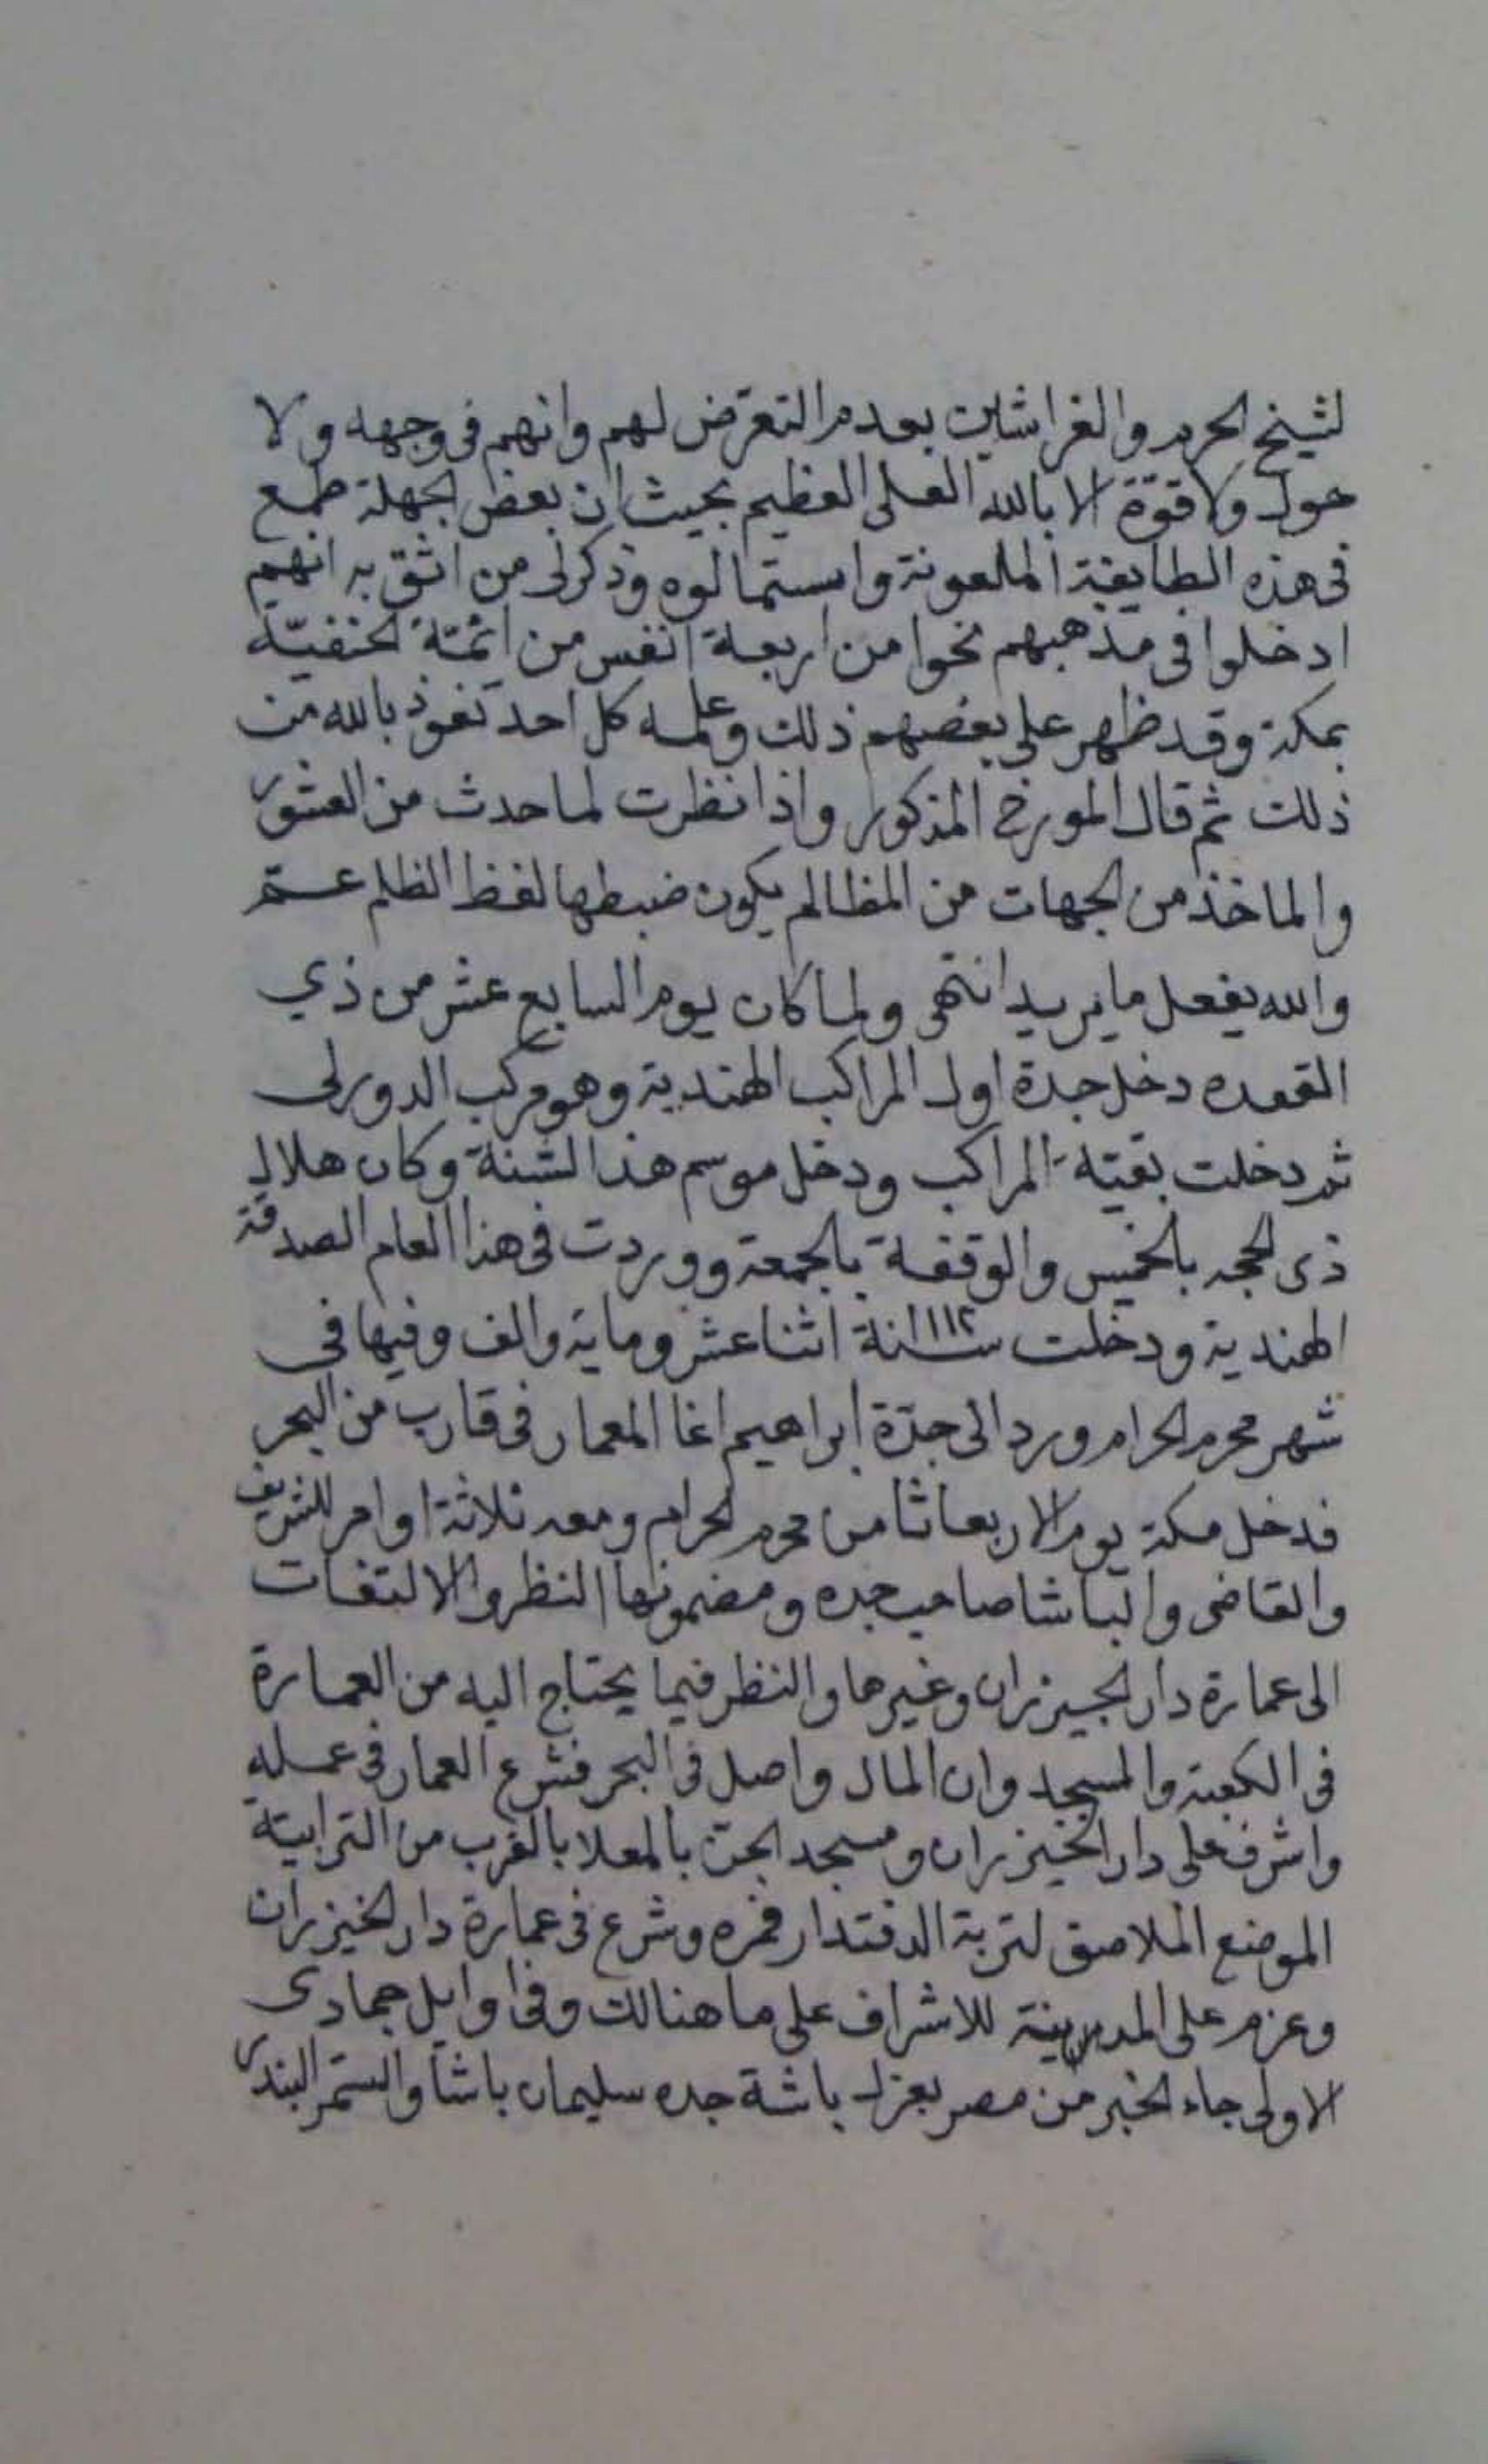 لشيخ الحرم والغراشين بعدم التعرّض لهم وانهم فى وجهه ولا
حول ولا قوّة الا بالله العلى العظيم بحيث ان بعض الجهلة طمع
فى هذه الطايفة الملعونة واستمالوه وذكر لى من اثق به انهم
ادخلوا فى مذهبهم نحوا من اربعة انفس من ائمّة الحنفيّة
بمكة وقد ظهر على بعضهم ذلك وعلمه كل احد نعوذ بالله من
ذلك ثم قال المورخ المذكور واذا نظرت لما حدث من العشور
والماخذ من الجهات من المظالم يكون ضبطها لفظ الظلم عـمّ
والله يفعل ما يريد انتهى ولما كان يوم السابع عشر من ذي
القعده دخل جدة اول المراكب الهندية وهو مركب الدورلى
ثم دخلت بقيّة المراكب ودخل موسم هذا السّنة وكان هلال
ذى الحجه بالخميس والوقفة بالجمعة ووردت فى هذا العام الصدقة
الهندية ودخلت سنة ١١١٢ اثنا عشر وماية والف وفيها فى
شهر محرم الحرام ورد الى جدّة ابراهيم اغا المعمار فى قارب من البحر
فدخل مكة يوم الاربعا ثامن محرم الحرام ومعه ثلاثة اوامر للشريف
والقاضى والباشا صاحب جده ومضمونها النظر والالتفات
الى عمارة دار الجيزران وغيرها والنظر فيما يحتاج اليه من العمارة
فى الكعبة والمسجد وان المال واصل فى البحر فشرع العمار فى عمله
واشرف على دار الخيزران ومسجد الجنّ بالمعلا بالقرب من الترابيّة
الموضع الملاصق لتربة الدفتدار فمره وشرع فى عمارة دار الخيزران
وعزم على المدينة للاشراف على ما هنالك وفى اوايل جمادى
الاولى جاء الخبر من مصر بعزل باشة جده سليمان باشا واستمر البندر